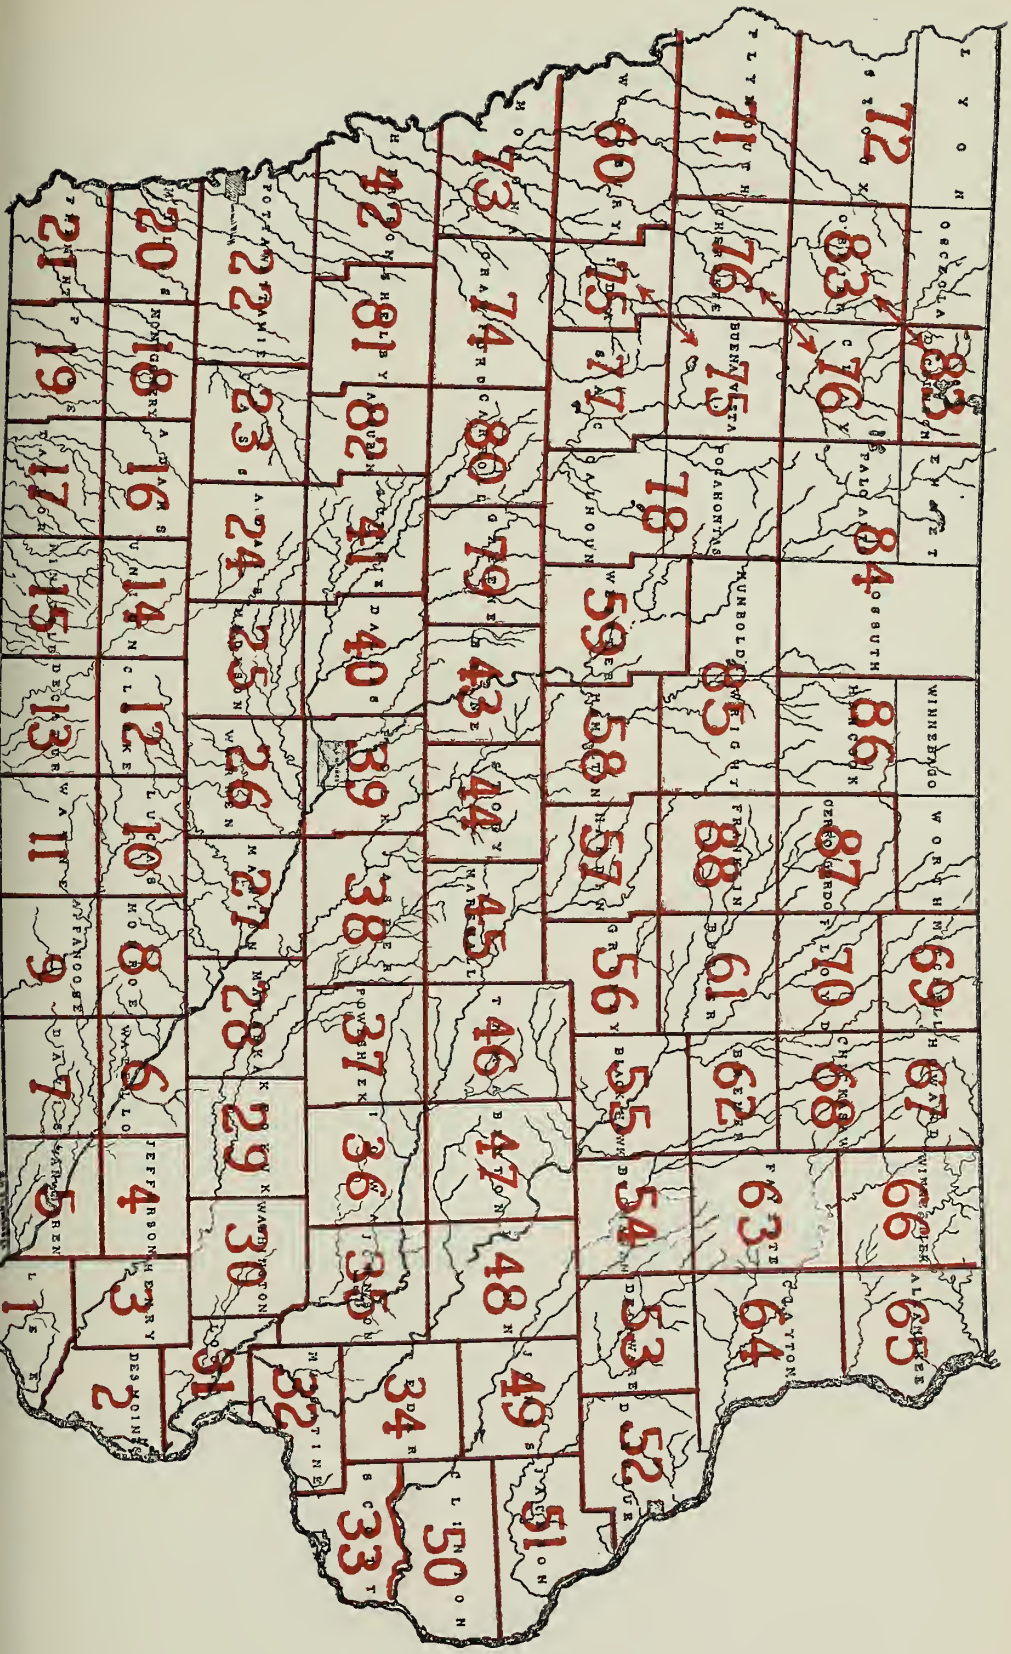 LYON
OSCEOLA
DICKINSON
83
EMMET
WINNEBAGO
WORTH
MITCHELL
69
HOWARD
67
WINNESHIEK
66
ALLAMAKEE
65
SIOUX
72
O'BRIEN
83
CLAY
76
PALO ALTO
84
KOSSUTH
HANCOCK
86
CERRO GORDO
87
FLOYD
70
CHICKASAW
68
PLYMOUTH
71
CHEROKEE
76
BUENA VISTA
75
POCAHONTAS
78
HUMBOLDT
85
WRIGHT
FRANKLIN
88
BUTLER
61
BREMER
62
FAYETTE
63
CLAYTON
64
WOODBURY
60
IDA
75
SAC
77
CALHOUN
WEBSTER
59
HAMILTON
58
HARDIN
57
GRUNDY
56
BLACKHAWK
55
54
DELAWARE
53
DUBUQUE
52
MONONA
73
CRAWFORD
74
CARROLL
80
GREENE
79
BOONE
43
STORY
44
MARSHALL
45
TAMA
46
BENTON
47
LINN
48
JONES
49
JACKSON
51
HARRISON
42
SHELBY
81
AUDUBON
82
GUTHRIE
41
DALLAS
40
POLK
39
JASPER
38
POWESHIEK
37
IOWA
36
JOHNSON
35
CEDAR
34
CLINTON
50
POTTAWATTAMIE
22
CASS
23
ADAIR
24
MADISON
25
WARREN
26
MARION
27
MAHASKA
28
KEOKUK
29
WASHINGTON
30
31
MUSCATINE
32
SCOTT
33
MILLS
20
MONTGOMERY
18
ADAMS
16
UNION
14
CLARKE
12
LUCAS
10
MONROE
8
WAPELLO
6
JEFFERSON
4
HENRY
3
DES MOINES
2
FREMONT
21
PAGE
19
TAYLOR
17
RINGGOLD
15
DECATUR
13
WAYNE
11
APPANOOSE
9
DAVIS
7
VAN BUREN
5
LEE
1